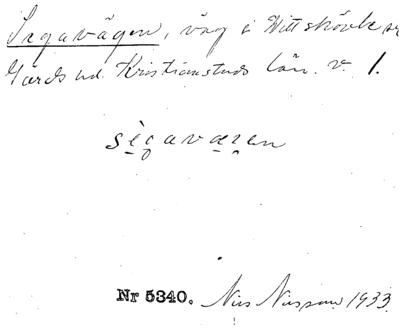 Segavägen, väg i Vittskövle sn
Gärds hd. Kristianstads län. v. 1.
sègaværen
Nr 5340. Nils Nilsson 1933.